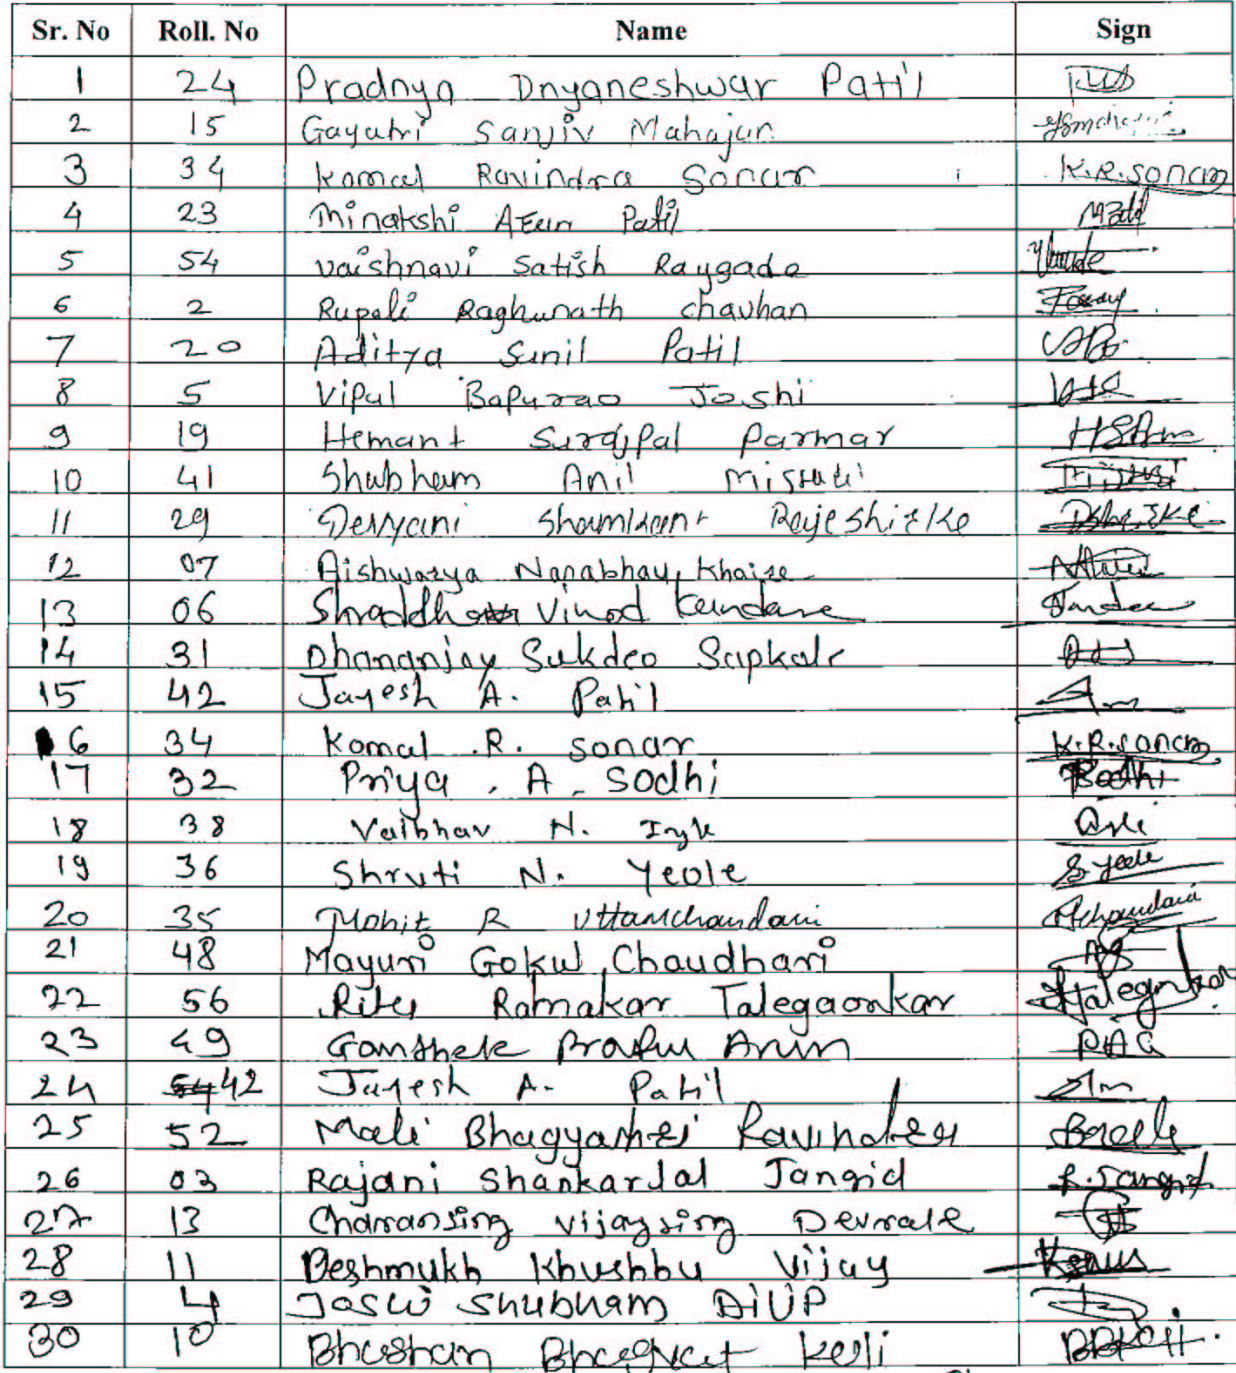 Sr. No Roll. No Name Sign
1 24 Pradnya Dnyaneshwar Patil
2 15 Gayatri Sanjiv Mahajan
3 34 Komal Ravindra Sonar K.R.Sonar
4 23 Minakshi Arun Patil
5 54 Vaishnavi Satish Raygade
6 2 Rupali Raghunath Chavhan
7 20 Aditya Sunil Patil
8 5 Vipul Bapurao Joshi
9 19 Hemant Surajpal Parmar
10 41 Shubham Anil Mistari
11 29 Devyani Shamkant
12 07 Aishwarya Nanabhau Khaire
13 06 Shraddha Vinod
14 31 Dhananjay Sukdeo Sapkale
15 42 Jayesh A. Patil
16 34 Komal .R. Sonar K.R.Sonar
17 32 Priya . A . Sodhi Sodhi
18 38 Vaibhav N. Ingle
19 36 Shruti N. Yeole S. Yeole
20 35 Mohit R Uttamchandani
21 48 Mayuri Gokul Chaudhari
22 56 Ritu Ratnakar Talegaonkar
23 49 Praful Arun PAG
24 42 Jayesh A. Patil
25 52 Mali Bhagyashri Ravindra
26 03 Rajani Shankarlal Jangid R.Jangid
27 13 Charansing Vijaysing
28 11 Deshmukh Khushbu Vijay
29 4 Joshi Shubham DiliP
30 10 Bhushan Bhagvat Koli